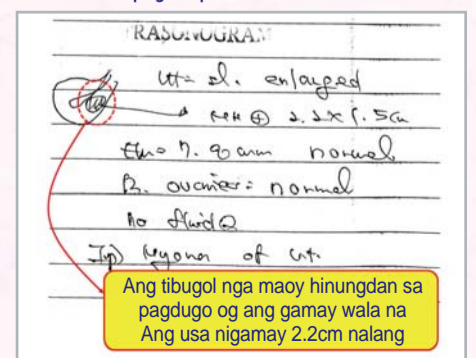 RASONOGRAM
Ut= sl. enlarged
⊕ 2.2 x 1.5cm
normal
ovaries: normal
no fluid
Imp) Myoma of Ut.
Ang tibugol nga maoy hinungdan sa
pagdugo og ang gamay wala na
Ang usa nigamay 2.2cm nalang